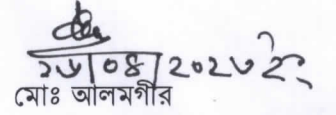 ২৬/০৪/২০২৩ ইং
মোঃ আলমগীর